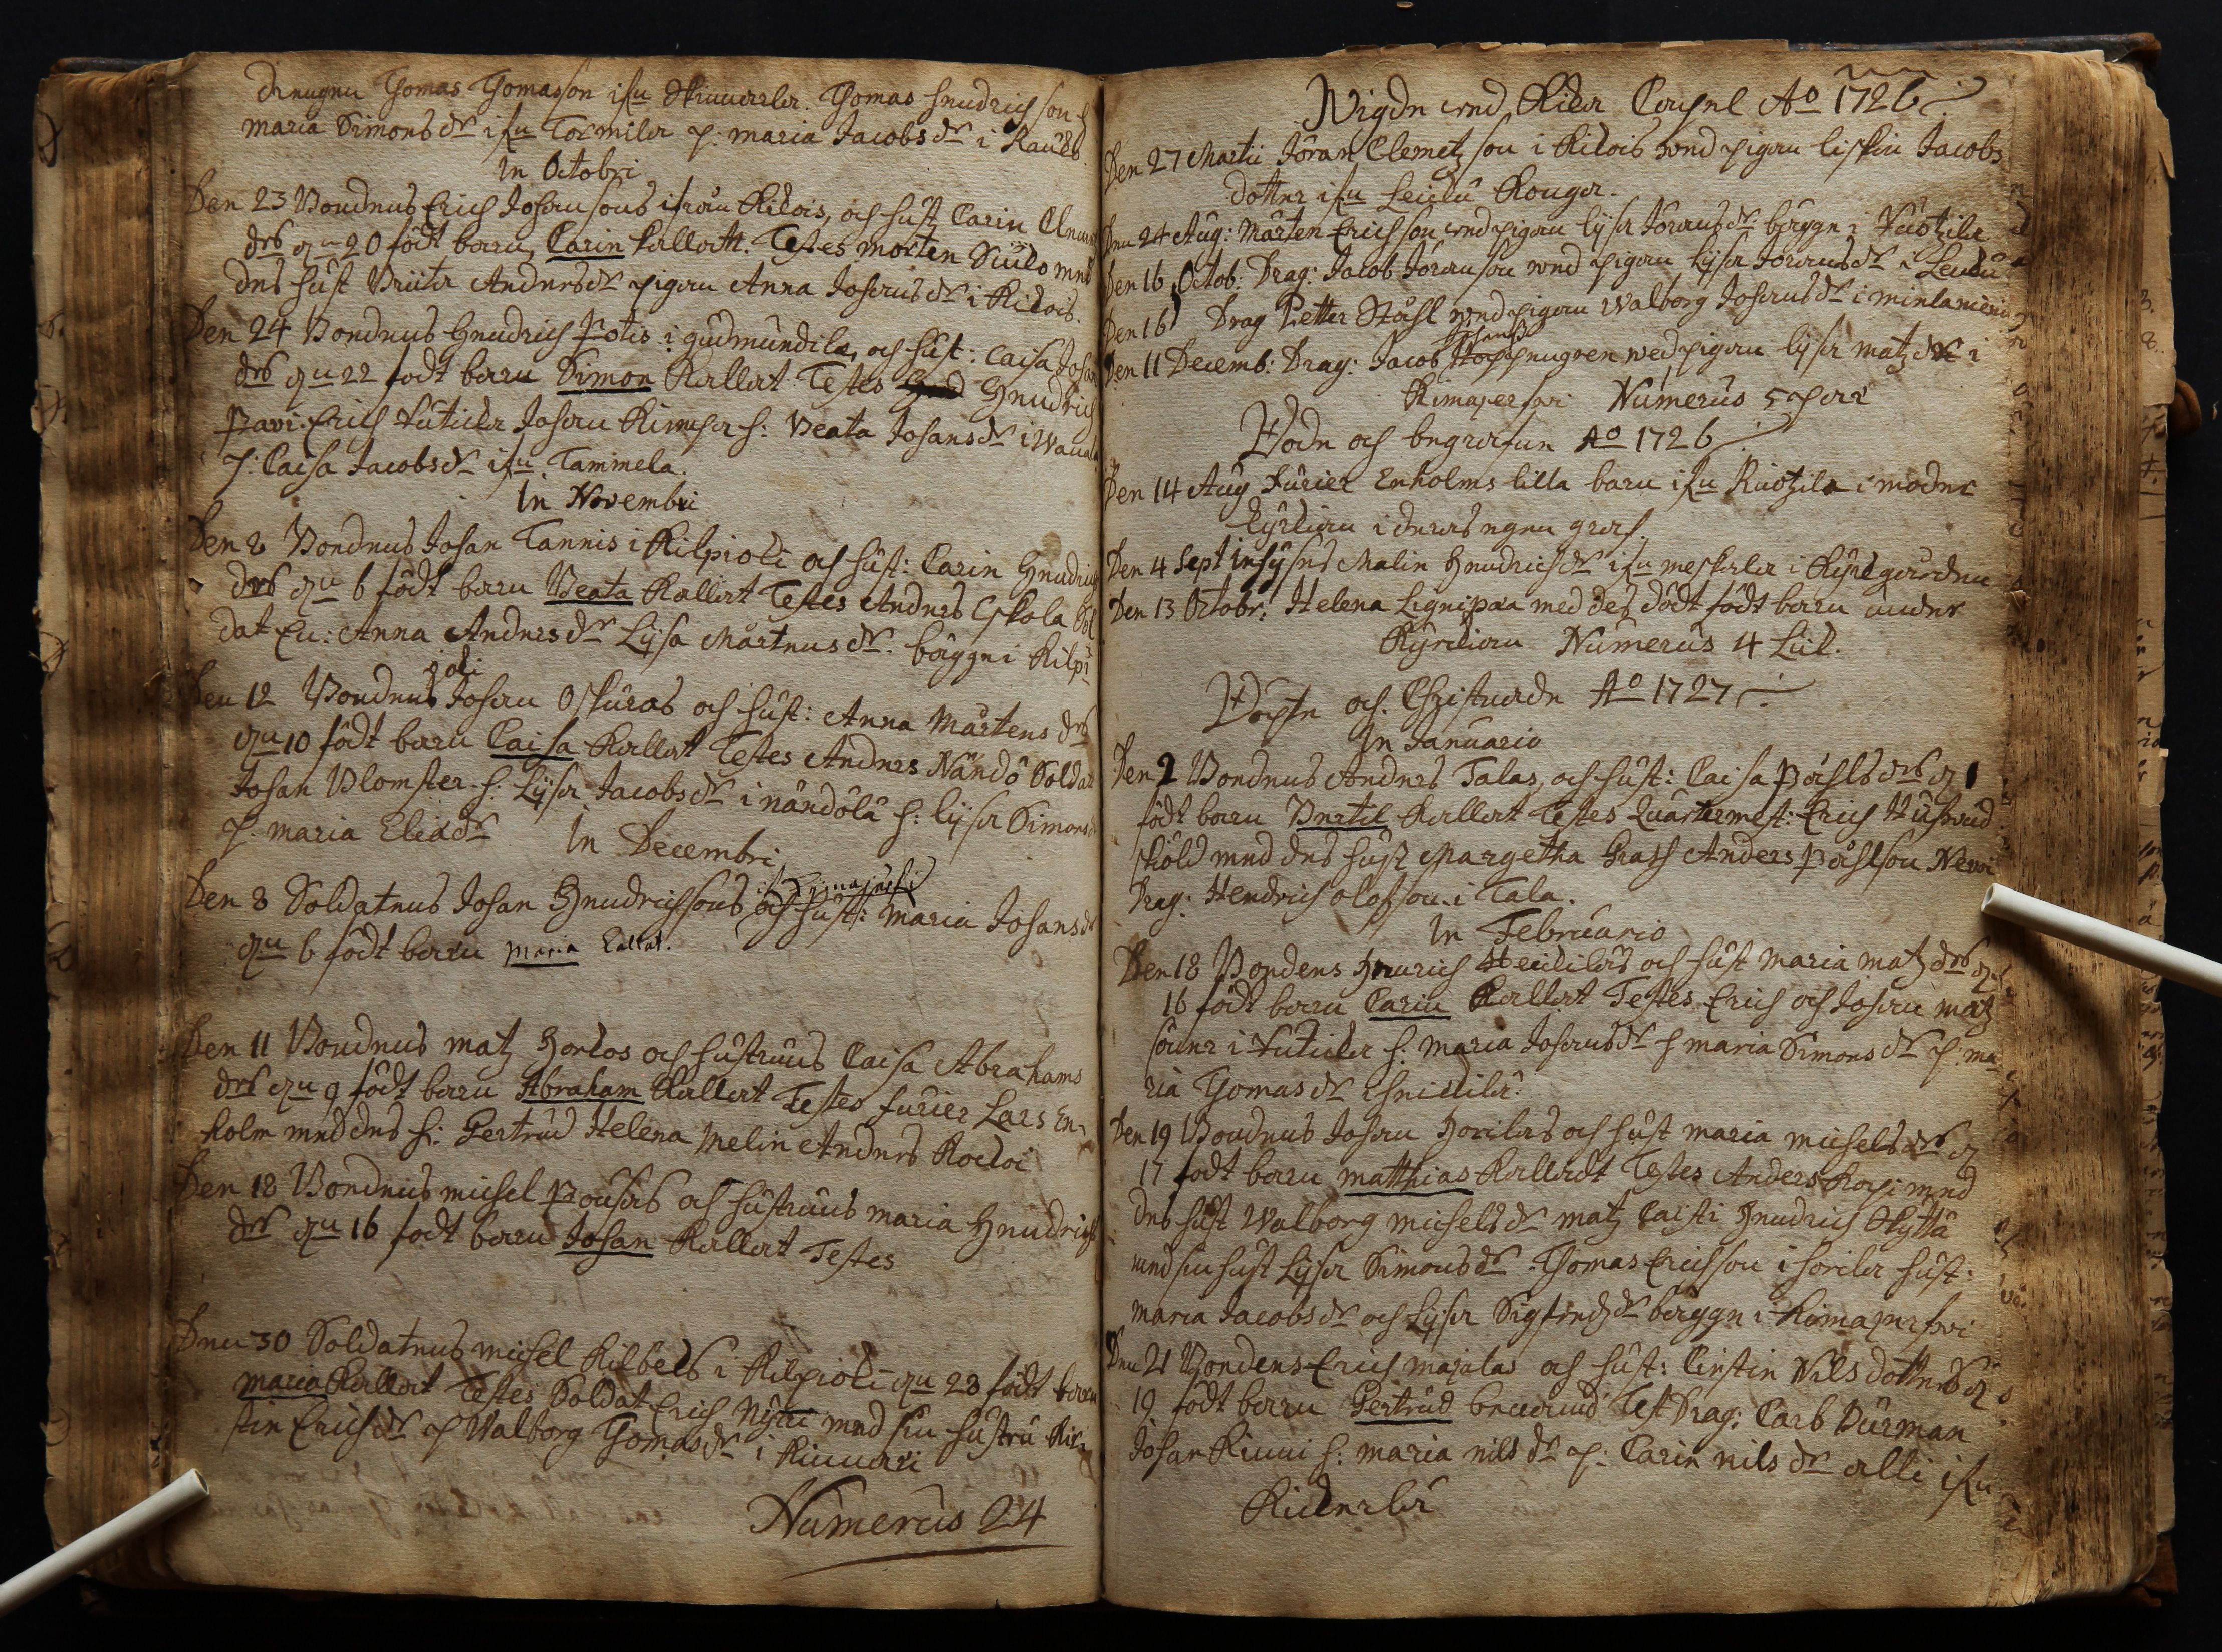 drengen Thomas Thomasson ifrn Skinnarla. Thomas Hendrichson h
maria Simons dr ifrn Tormila p: maria Jacobs dr i
In Octobri
Den 23 Bondens Erich Johansons ifrån Kidois, och hust Carin Clemet
drs en 20 födt barn, Carin kallatt. Testes morten Suulo med
des hust Briita Anders dr pigan Anna Johans dr i Kidois.
Den 24 Bondens Hendrich Potis i gudmundila, och hust: Caisa Johan
drs en 22 födt barn Simon Kallat: Testes Hendrich
Pavi. Erich Tutula Johan h: Beata Johans dr i
p: Caisa Jacobs dr ifrn Tammela.
In Novembri
Den 8 Bondens Johan Tannis i Kilpioki och hust: Carin Hendrich
drs en 6 födt barn Beata Kallat Testes Anders Eskola Sol
dat En: Anna Anders dr Lijsa Mårtens dr. bägge i Kilpi
joki
Den 12 Bondens Johan Oskuras och hust: Anna Mårtens drs
en 10 födt barn Caisa Kallat Testes Anders Nändö Soldat
Johan Blomster h: Lijsa Jacobs dr i nändölä h: lijsa Simons dr
p: maria Elia dr In Decembri
Den 8 Soldatens Johan Hendrichsons och hust: maria Johans dr
en 6 födt barn Maria Kallat.
Den 11 Bondens matz Horlos och hustrus Caisa Abrahams
drs en 9 födt barn Abraham Kallat Testes furier Lars En-
holm med des h: Gertrud Helena Melin Anders
Den 18 Bondens michel och hustrus maria Hendrichs
drs en 16 födt barn Johan Kallat Testes
Den 30 Soldatens michel Kilbeks i Kilpioki en 28 födt barn
maria Kallat Testes Soldat Erich med sin hustru Kir
stin Erichs dr p Walborg Thomas dr i
Numerus 24
Wigde wed Kida Capel Ao 1726
Den 27 Martii Jöran Clemetzson i Kidois wed pigan liskin Jacobs
dotter ifrn
Den 24 Aug: Mårten Erichson wed pigan lijsa Jörans dr bägge i
Den 16 Octob: Drag: Jacob Joranson wed pigan lijsa Jorans dr i
Den 16 Drag Petter Ståhl wed pigan Walborg Johans dr i
Den 11 Decemb: Drag: Jacob wed pigan lijsa matz dr i
Kimajerfwi Numerus 5 par
Döde och begrafne Ao 1726
Den 14 Aug Furier Enholms lilla barn ifrn Kuotzila i moder
kyrkian i deras egen graf.
Den 4 Sept Malin Hendrichs dr ifrn meskala i kyrkgården
Den 13 Octobr: Helena Lignipæa med des dödt födt barn under
Kyrckian Numerus 4 Lik.
Döpte och Christnade Ao 1727
In Januario
Den 2 Bondens Anders Talas, och hust: Caisa Påhls drs d 1
födt barn Bertil Kallat Testes Quartermest: Erich Hufwud
sköld med des hust Margetha Grass Anders Påhlson
Drag: Hendrich olofson i Tala.
In Februario
Den 18 Bondens Henrich och hust Maria matz drs d
16 födt barn Carin Kallat Testes Erich och Johan matz
söner i Tutula h: maria Johans dr h maria Simons dr p: ma
ria Thomas dr
Den 19 Bondens Johan Horilas och hust maria michels drs d
17 födt barn matthias Kalladt Testes Anders med
des hust Walborg michels dr matz Hendrich Skyttä
med sin hust Lijsa Simons dr Thomas Erichson i horila hust:
maria Jacobs dr och Lijsa Sigfredz dr bägge i Kimajerfwi
Den 21 Bondens Erich majalas och hust: Cirstin Nils dotters d
19 födt barn Gertrud benämnd Test Drag: Carl Burman
Johan Kinni h: maria nils dr p: Carin nils dr alle ifrn